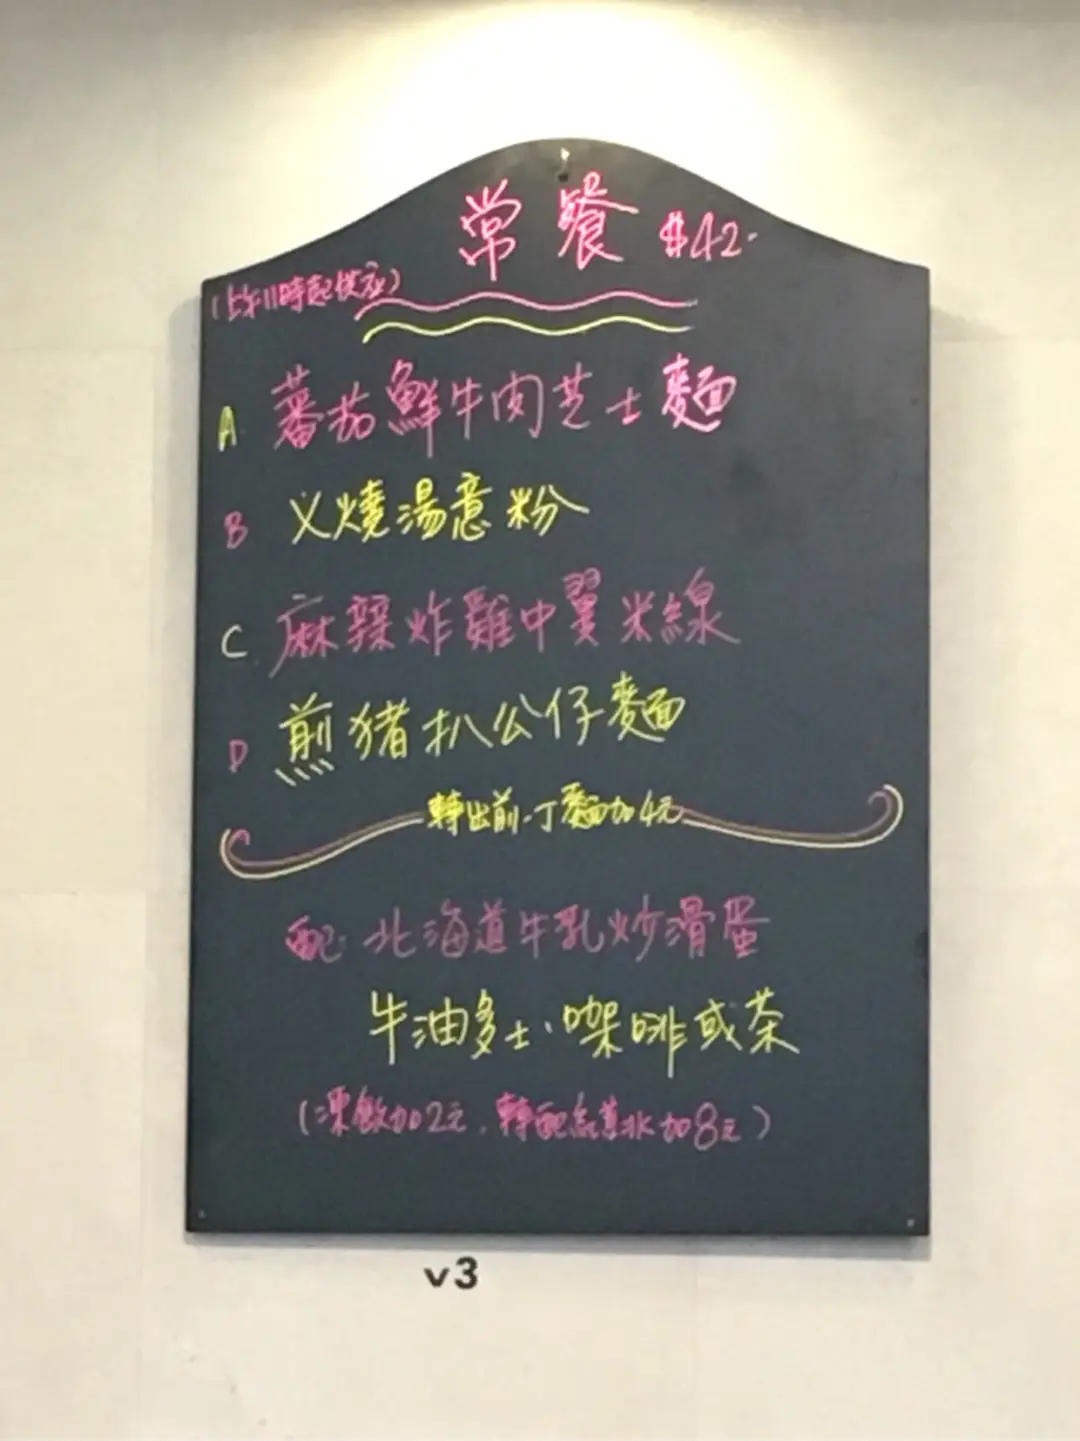 常餐 $42-
(上午11時起供应)
A 蕃茄鮮牛肉芝士麵
B 义燒湯意粉
C 麻辣炸雞中翼米線
D 煎猪扒公仔麵
轉出前一丁麵加4元
配: 北海道牛乳炒滑蛋
牛油多士、咖啡或茶
(凍飲加2元, 轉配 加8元)
v3